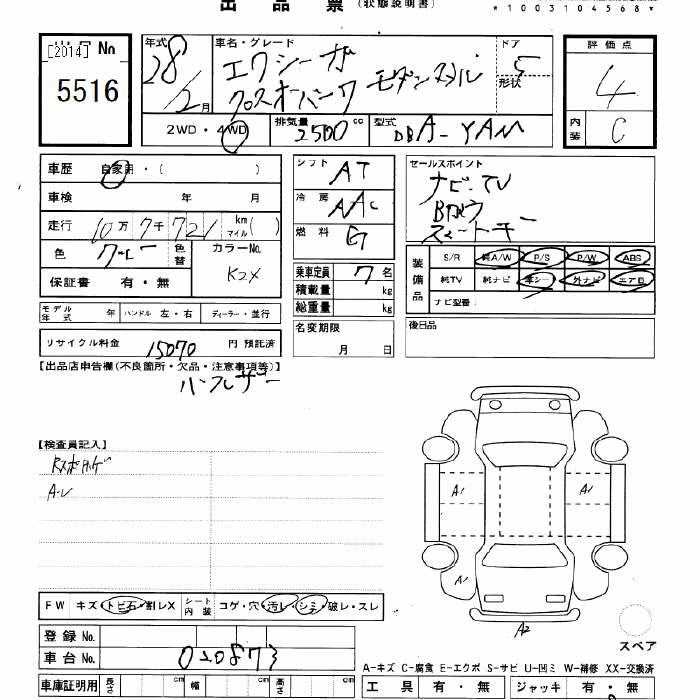 出品票 (状態説明書)
*1003104568*
[2014] No
5516
年式 28/2月
車名・グレード エクシーガ
クロスオーバー7 モダンスタイル
ドア 5
形状
評価点 4
内装 C
2WD・4WD 排気量 2500 cc 型式 DBA-YAM
車歴 自家用・( )
車検 年 月
走行 10万7千721 km マイル( )
色 色替 カラーNo. K2X
保証書 有・無
シフト AT
冷房 AAC
燃料 G
乗車定員 7名
積載量 kg
総重量 kg
セールスポイント
ナビ・TV
Bカメラ
スマートキー
装備品 S/R 純A/W P/S P/W ABS
純TV 純ナビ 革シート 外ナビ エアB
ナビ型番:
モデル年式 年 ハンドル 左・右 ディーラー・並行
名変期限 月 日
後日品
リサイクル料金 15070 円 預託済
【出品店申告欄(不良箇所・欠品・注意事項等)】
ハーフレザー
【検査員記入】
A-レ
A1 A1
A1
A2
FW キズ・トビ石・割レX シート内装 コゲ・穴・汚レ・シミ・破レ・スレ
登録No.
車台No. 020873
スペア
A-キズ C-腐食 E-エクボ S-サビ U-凹ミ W-補修 XX-交換済
車庫証明用 長さ cm 幅 cm 高さ cm
工具 有・無 ジャッキ 有・無